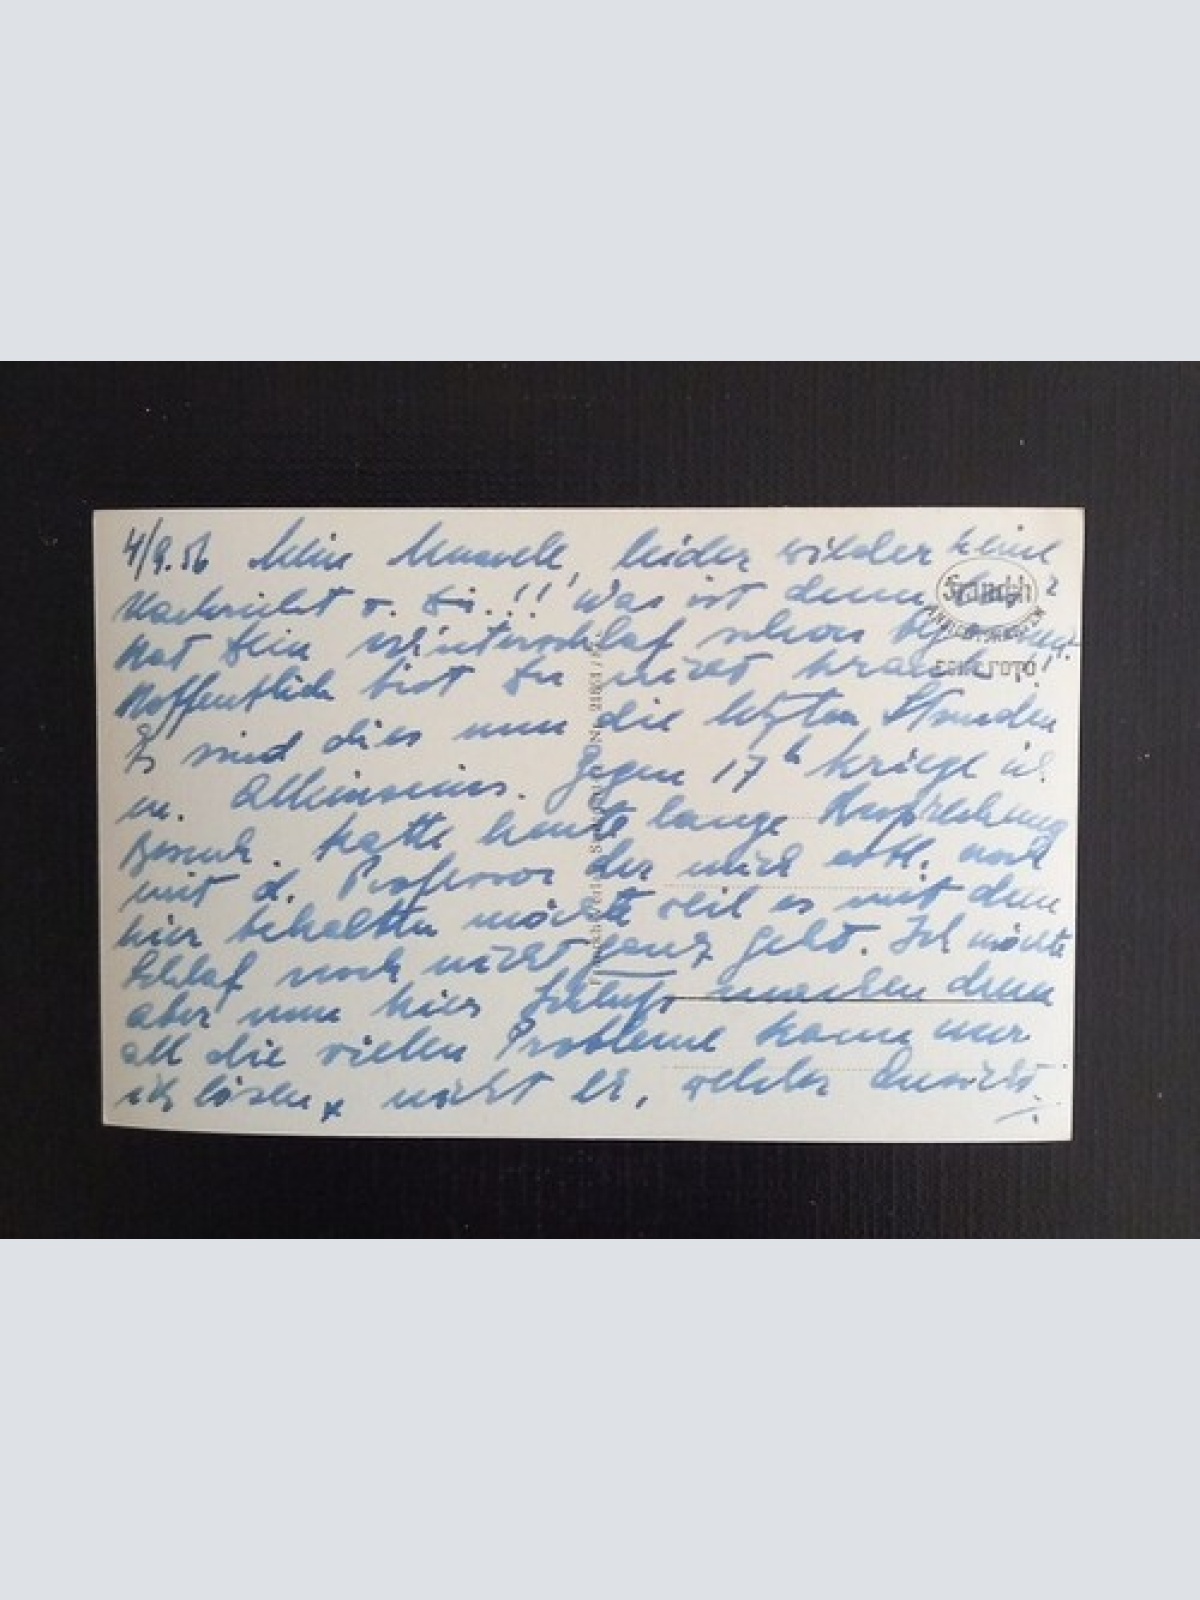 4/9.56 Mein leider wieder keine
Nachricht v. Dir!!! Was ist denn ?
Hat Dein Winterschlaf schon begonnen?
Hoffentlich bist Du nicht krank!!
Es sind dies nun die letzten Stunden
m. Alleinseins. Gegen 17h kriege ich
Besuch. Hatte heute lange Unsprechung
mit d. Professor der mich evtl. noch
hier behalten möchte weil es mit dem
Schlaf noch nicht ganz geht. Ich möchte
aber nun hier Schluss machen denn
all die vielen Probleme kann nur
ich lösen, nicht er, welcher Ansicht
Franckh
ECHT FOTO